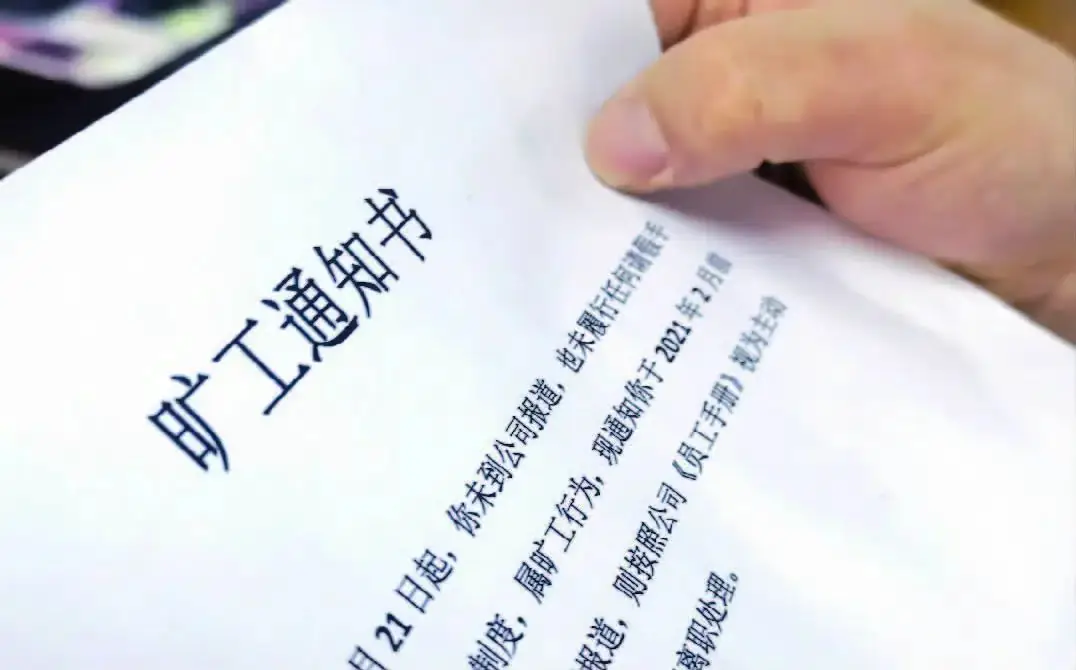 旷工通知书
月 21 日起，你未到公司报道，也未履行任何请假手
制度，属旷工行为，现通知你于 2021 年 2 月前
报道，则按照公司《员工手册》视为主动
离职处理。